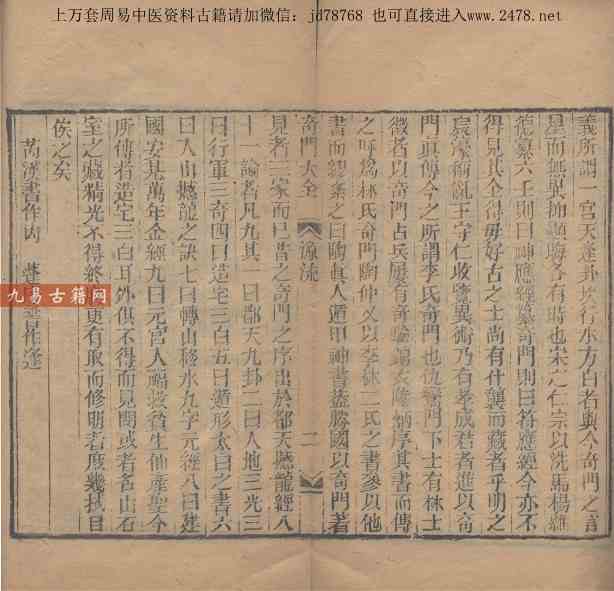 上万套周易中医资料古籍请加微信：jd78768 也可直接进入www.2478.net
義所謂一宮天逢卦坎行水方白者與今奇門之言
星而無異抑顯晦各有時也宋之仁宗以洗馬楊維
德纂六壬則曰神應經纂奇門則曰符應經今亦不
得見其全得毋好古之士尚有什襲而藏者乎明之
宸濠
亂王守仁收覽異術乃有李成君者進以奇
門真傳今之所謂李氏奇門也仇鸞門下士有林士
徵者以奇門占兵屢有奇驗錦衣陸炳序其書而傳
之呼為林氏奇門陶仲文以李林二氏之書參以他
書而經緯之曰陶真人遁甲神書蓋勝國以奇門著
奇門大全
源流
二
見者三家而已昔之奇門之序出於都天撼龍經八
十一論者凡九其一曰都天九卦二曰人地三元三
曰行軍三奇四曰造宅三白五曰遁形太白之書六
曰人山撼龍之訣七曰轉山移水九字元經八曰建
國安基萬年金經九曰元宮入福救貧生仙產聖今
所傳者造宅三白耳外俱不得而見聞或者名山石
室之藏精光不得終
更有取而修明者庶幾拭目
俟之矣
芮漢書作内
作逢
九易古籍网